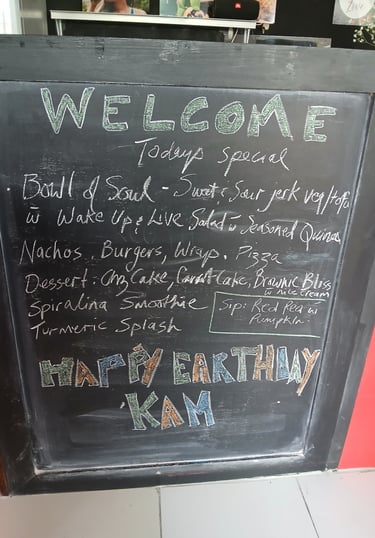 WELCOME
Todays special
Bowl of Soul - Sweet & Sour jerk veg/tofu
w Wake Up & Live Salad w Seasoned Quinoa
Nachos, Burgers, Wrap, Pizza
Dessert: Chz Cake, Carrot Cake, Brownie Bliss
w nice cream
Spiralina Smoothie
Sip: Red Pea w
Pumpkin
Turmeric Splash
HAPPY EARTHDAY
KAM